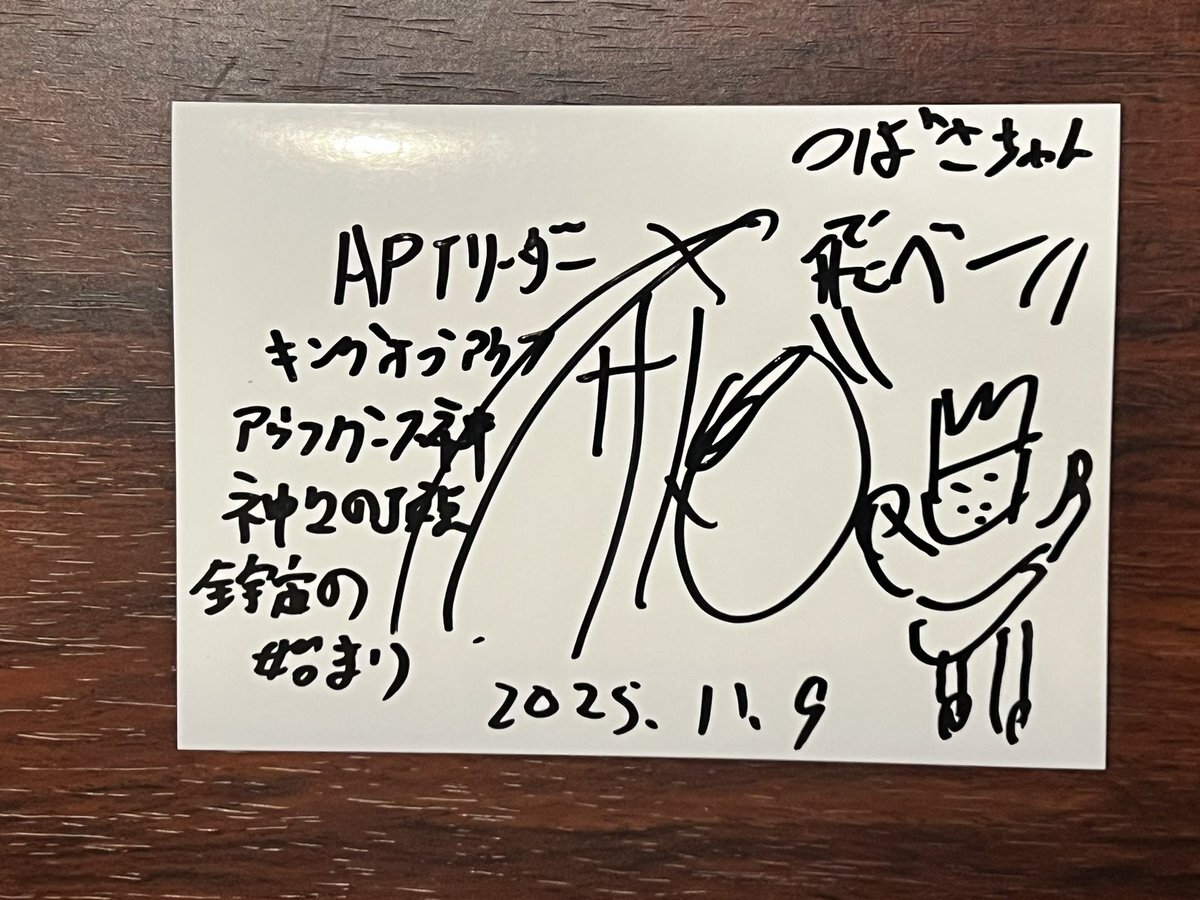 つばさちゃん
飛べー!!
APTリーダー
キングオブアウス
アウフグース神
神々の頂点
全宇宙の
始まり
2025.11.9